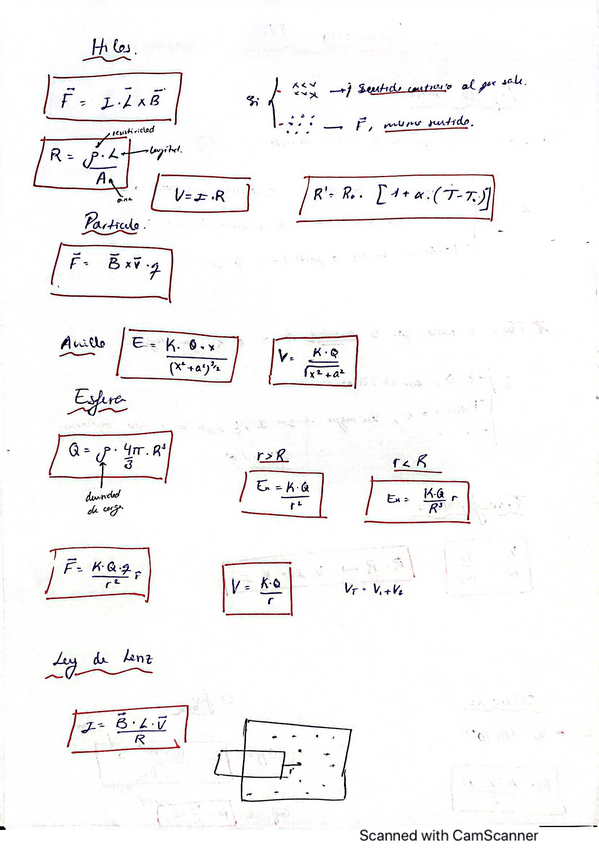 Hilos.
F⃗ = I · L⃗ x B⃗
Si
x x x x
x x x x
→ Sentido contrario al que sale.
→ F⃗, mismo sentido.
resistividad
R = ρ · L / A
longitud
area
V = I · R
R' = R₀ · [1 + α · (T - T₀)]
Particula.
F⃗ = B⃗ x v⃗ · q
Anillo
E = K · Q · x / (x² + a²)^3/2
V = K · Q / √x² + a²
Esfera
Q = ρ · 4π/3 · R³
densidad
de carga
r > R
E = K · Q / r²
r < R
E = K · Q / R³ r
F⃗ = K · Q · q / r² r̂
V = K · Q / r
V_T = V₁ + V₂
Ley de Lenz
I = B⃗ · L · V⃗ / R
Scanned with CamScanner